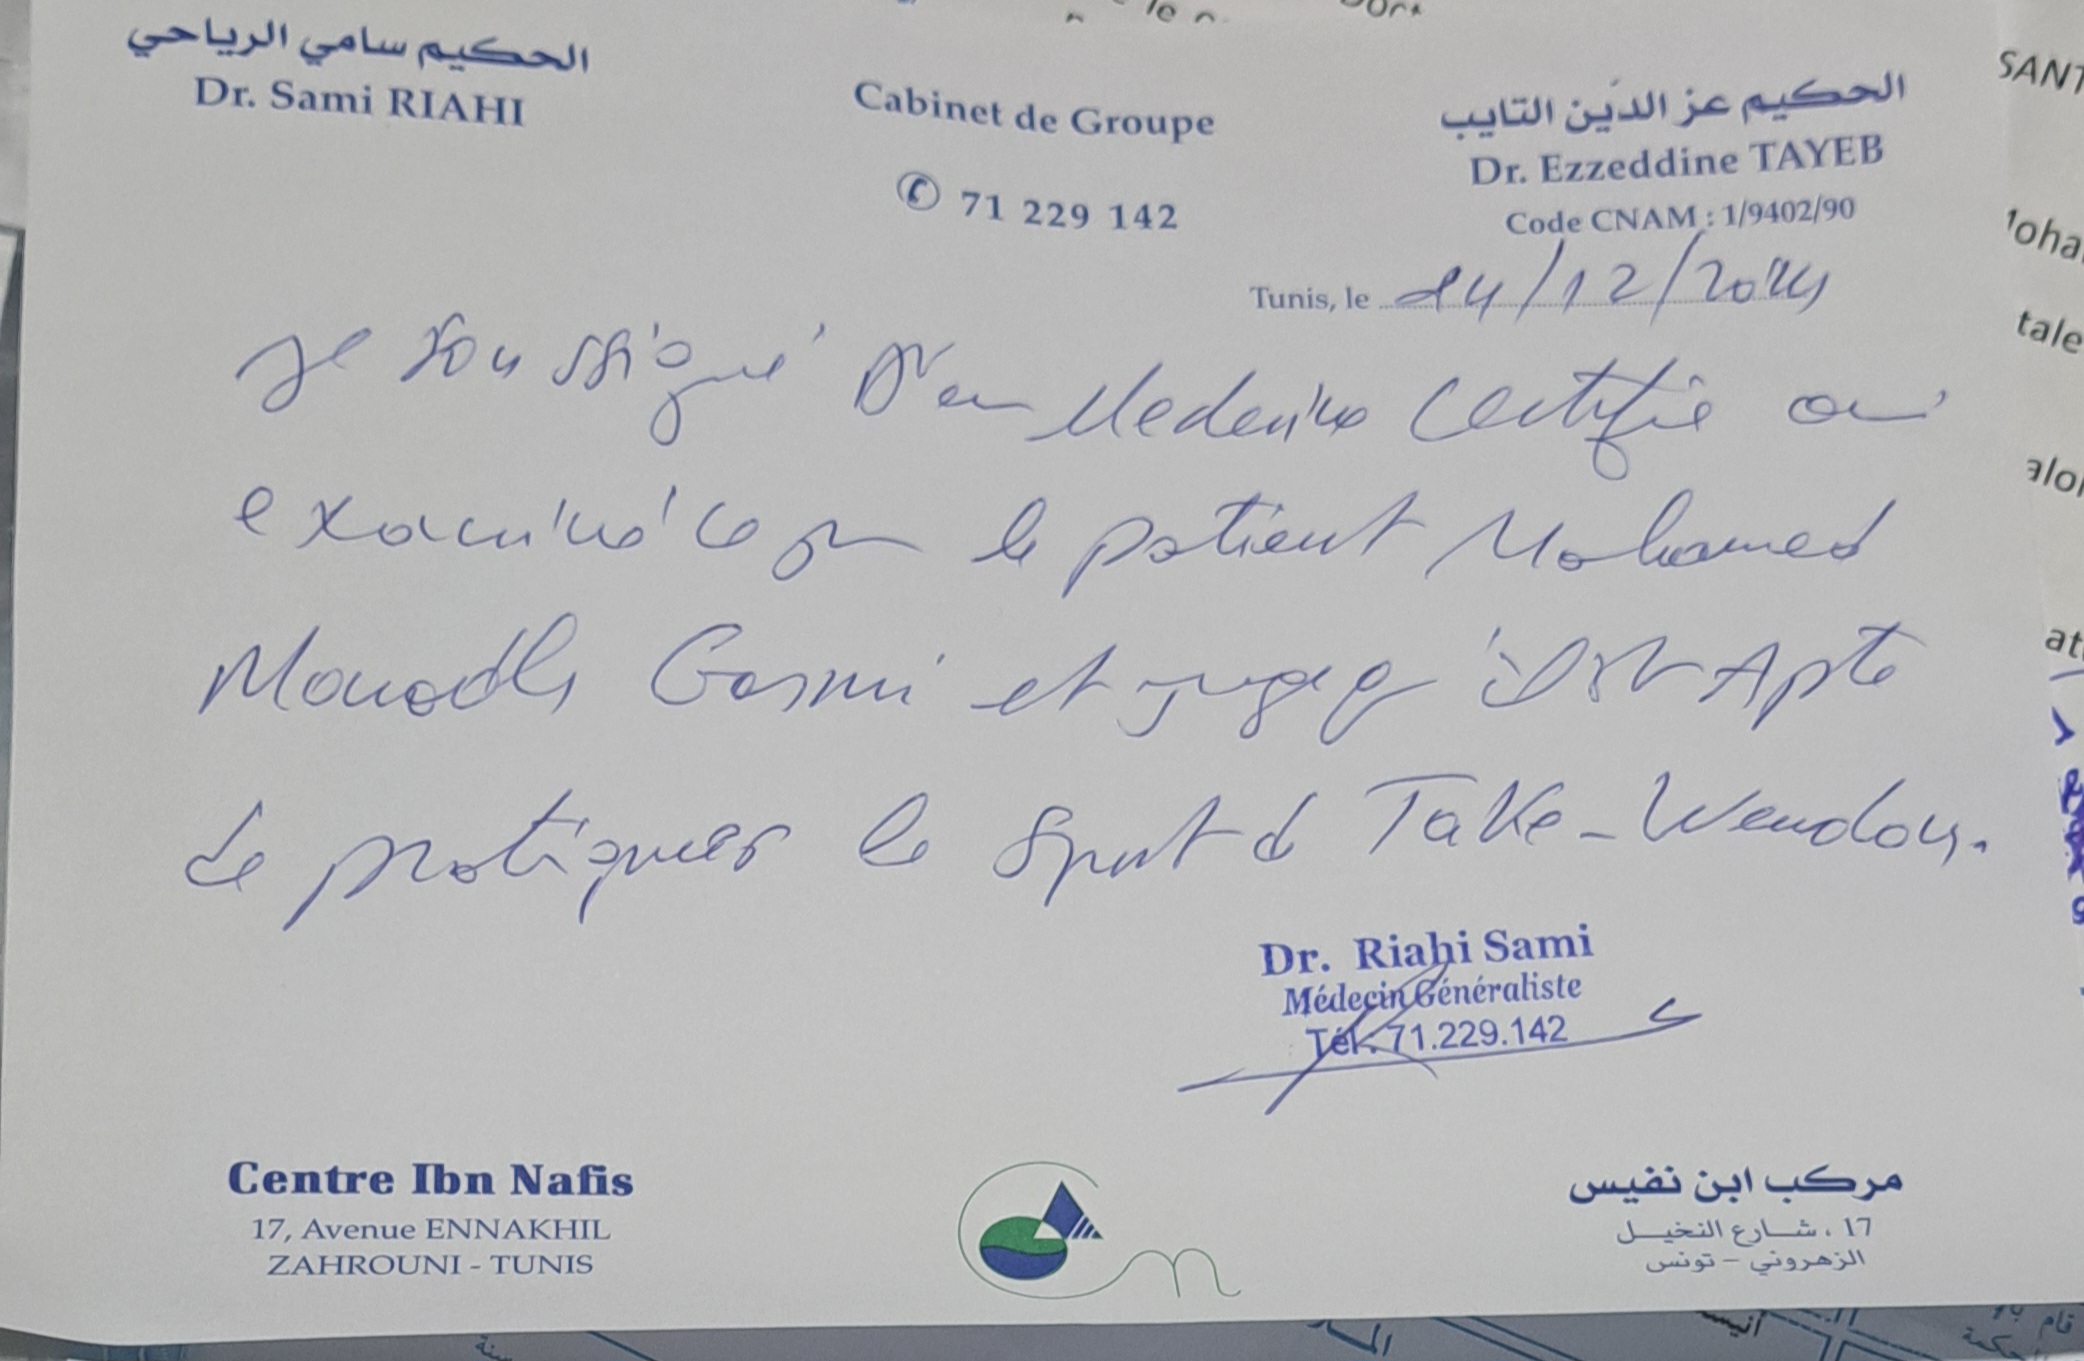 الحكيم سامي الرياحي
Dr. Sami RIAHI
Cabinet de Groupe
✆ 71 229 142
الحكيم عز الدين التايب
Dr. Ezzeddine TAYEB
Code CNAM : 1/9402/90
Tunis, le 24/12/2024
Je soussigné Dr en Medecine Certifie avoir
examiné ce jour le patient Mohamed
Mouadh Gasmi et juge qu'il est Apte
de pratiquer le sport d Take-Wendou.
Dr. Riahi Sami
Médecin Généraliste
Tél. 71.229.142
Centre Ibn Nafis
17, Avenue ENNAKHIL
ZAHROUNI - TUNIS
مركب ابن نفيس
17 ، شارع النخيل
الزهروني - تونس
SANT
tale
alo